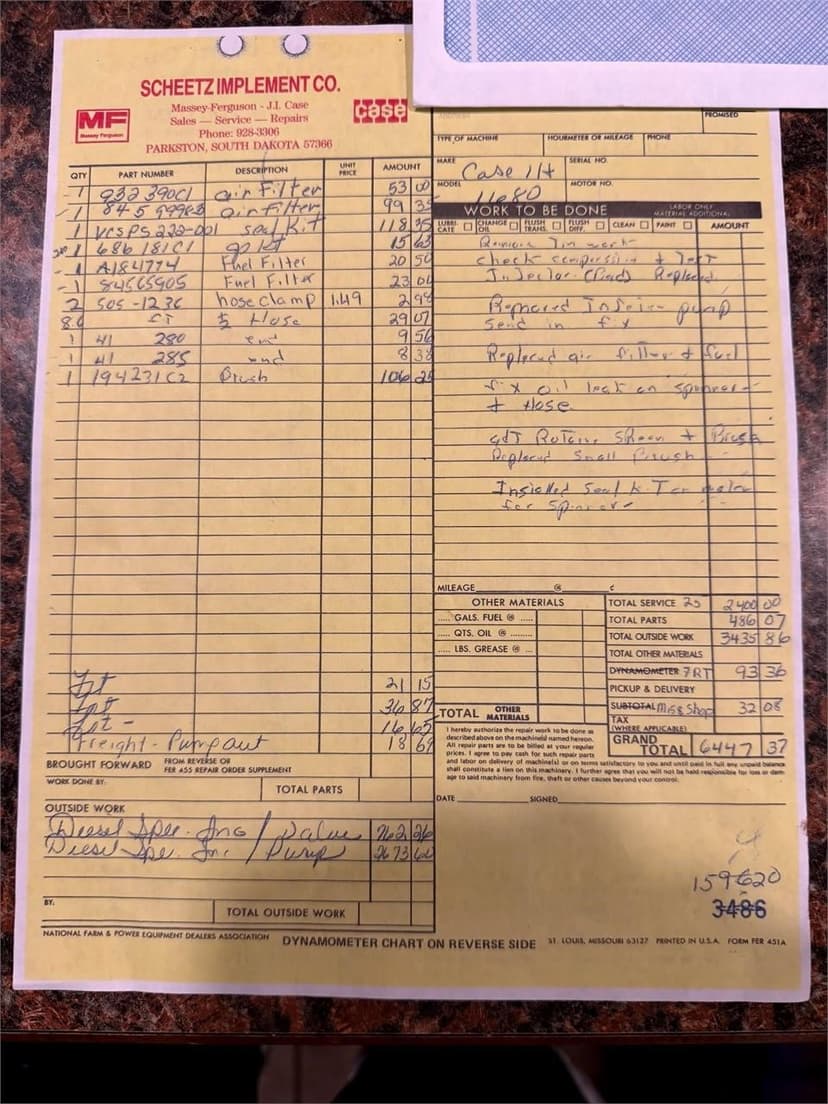 SCHEETZ IMPLEMENT CO.
Massey-Ferguson - J.I. Case
Sales — Service — Repairs
Phone: 928-3306
PARKSTON, SOUTH DAKOTA 57366
MF
Massey Ferguson
case
PROMISED
TYPE OF MACHINE HOURMETER OR MILEAGE PHONE
MAKE Case IH SERIAL NO.
MODEL MOTOR NO.
QTY PART NUMBER DESCRIPTION UNIT PRICE AMOUNT
1 air Filter 53 00
1 air Filter 99 35
1 VCSPS222-001 seal Kit
1 686 181C1 15 63
1 A184774 Fuel Filter 20 50
1 84565905 Fuel Filter
2 505-1236 hose clamp 1.49 2 98
Hose 29 07
1 41 280 end 9 56
1 41 285 end 8 38
1 194231C2 Brush 106 25
WORK TO BE DONE LABOR ONLY MATERIAL ADDITIONAL
LUBRI-CATE CHANGE OIL FLUSH TRANS. FLUSH DIFF. CLEAN PAINT AMOUNT
check compression + test
Injector Replaced
pump
send in fix
Replaced air filter + fuel
fix oil leak on
+ Hose
+ Brush
Replaced Small Brush
Installed Seal Kit
for
MILEAGE @ ¢
OTHER MATERIALS
GALS. FUEL @
QTS. OIL @
LBS. GREASE @
TOTAL OTHER MATERIALS
TOTAL SERVICE 25 2400 00
TOTAL PARTS 486 07
TOTAL OUTSIDE WORK 3435 86
TOTAL OTHER MATERIALS
DYNAMOMETER FRT 93 36
PICKUP & DELIVERY
SUBTOTAL Mis & Shop 32 08
TAX (WHERE APPLICABLE)
GRAND TOTAL 6447 37
21 15
36 87
16 65
Freight - Pump out 18 69
BROUGHT FORWARD FROM REVERSE OR FER 455 REPAIR ORDER SUPPLEMENT
WORK DONE BY: TOTAL PARTS
I hereby authorize the repair work to be done as
described above on the machine named hereon.
All repair parts are to be billed at your regular
prices. I agree to pay cash for such repair parts
and labor on delivery of machine(s) or on terms satisfactory to you and until paid in full any unpaid balance
shall constitute a lien on this machinery. I further agree that you will not be held responsible for loss or dam-
age to said machinery from fire, theft or other causes beyond your control.
DATE SIGNED
OUTSIDE WORK
Diesel Spe. Inc / Valve 762 26
Diesel Spe. Inc. / Pump 2673 60
BY: TOTAL OUTSIDE WORK
159620
3486
NATIONAL FARM & POWER EQUIPMENT DEALERS ASSOCIATION DYNAMOMETER CHART ON REVERSE SIDE ST. LOUIS, MISSOURI 63127 PRINTED IN U.S.A. FORM FER 451A